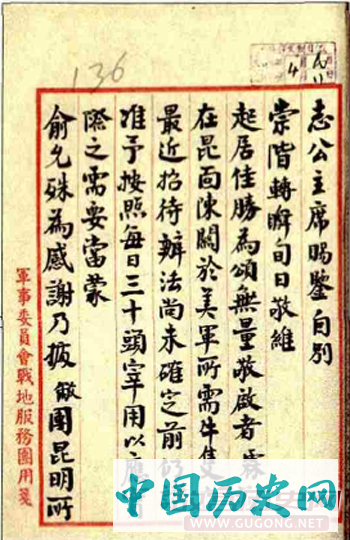 136
4
志公主席賜鑒自別
崇階轉瞬旬日敬維
起居佳勝為頌無量敬啟者
在昆面陳關於美軍所需牛隻
最近招待辦法尚未確定前仍
准予按照每日三十頭宰用以應
際之需要當蒙
俞允殊為感謝乃據敝團昆明所
軍事委員會戰地服務團用箋
中国历史网
WWW.GUGONG.NET